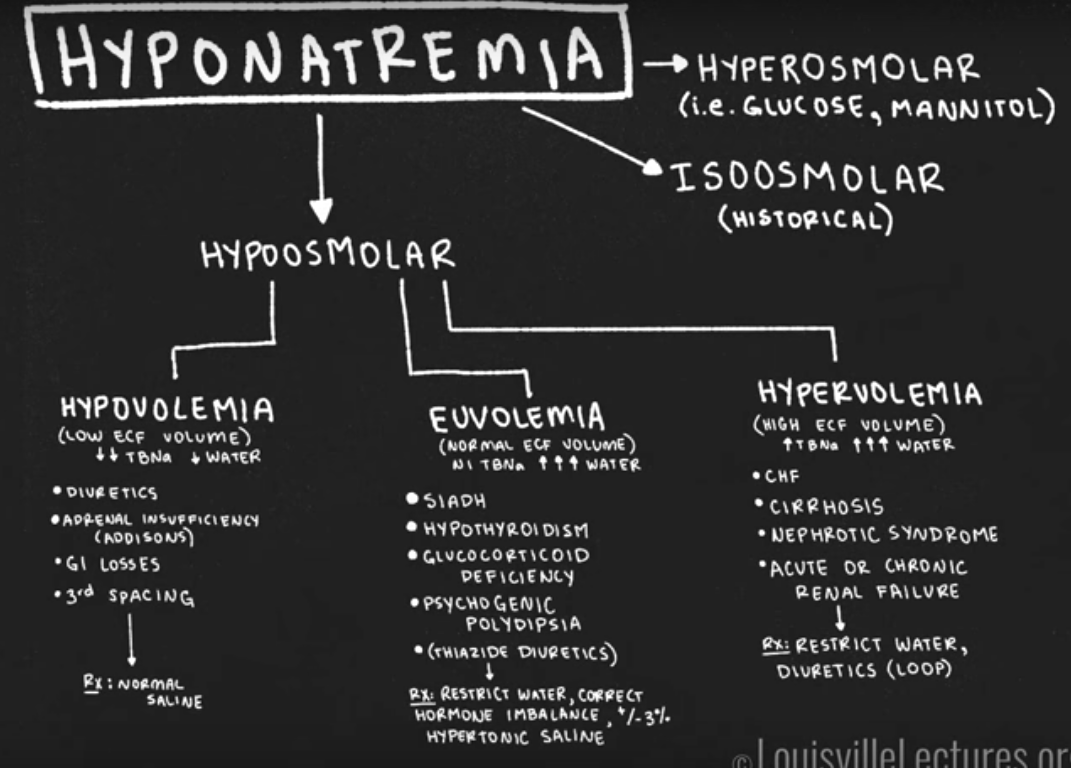 HYPONATREMIA
→ HYPEROSMOLAR
(i.e. GLUCOSE, MANNITOL)
ISOOSMOLAR
(HISTORICAL)
HYPOOSMOLAR
HYPOVOLEMIA
(LOW ECF VOLUME)
↓↓ TBNa ↓ WATER
• DIURETICS
• ADRENAL INSUFFICIENCY
(ADDISONS)
• GI LOSSES
• 3rd SPACING
Rx: NORMAL
SALINE
EUVOLEMIA
(NORMAL ECF VOLUME)
Nl TBNa ↑↑↑ WATER
• SIADH
• HYPOTHYROIDISM
• GLUCOCORTICOID
DEFICIENCY
• PSYCHOGENIC
POLYDIPSIA
• (THIAZIDE DIURETICS)
Rx: RESTRICT WATER, CORRECT
HORMONE IMBALANCE, +/- 3%
HYPERTONIC SALINE
HYPERVOLEMIA
(HIGH ECF VOLUME)
↑TBNa ↑↑↑ WATER
• CHF
• CIRRHOSIS
• NEPHROTIC SYNDROME
• ACUTE OR CHRONIC
RENAL FAILURE
Rx: RESTRICT WATER,
DIURETICS (LOOP)
© LouisvilleLectures.or